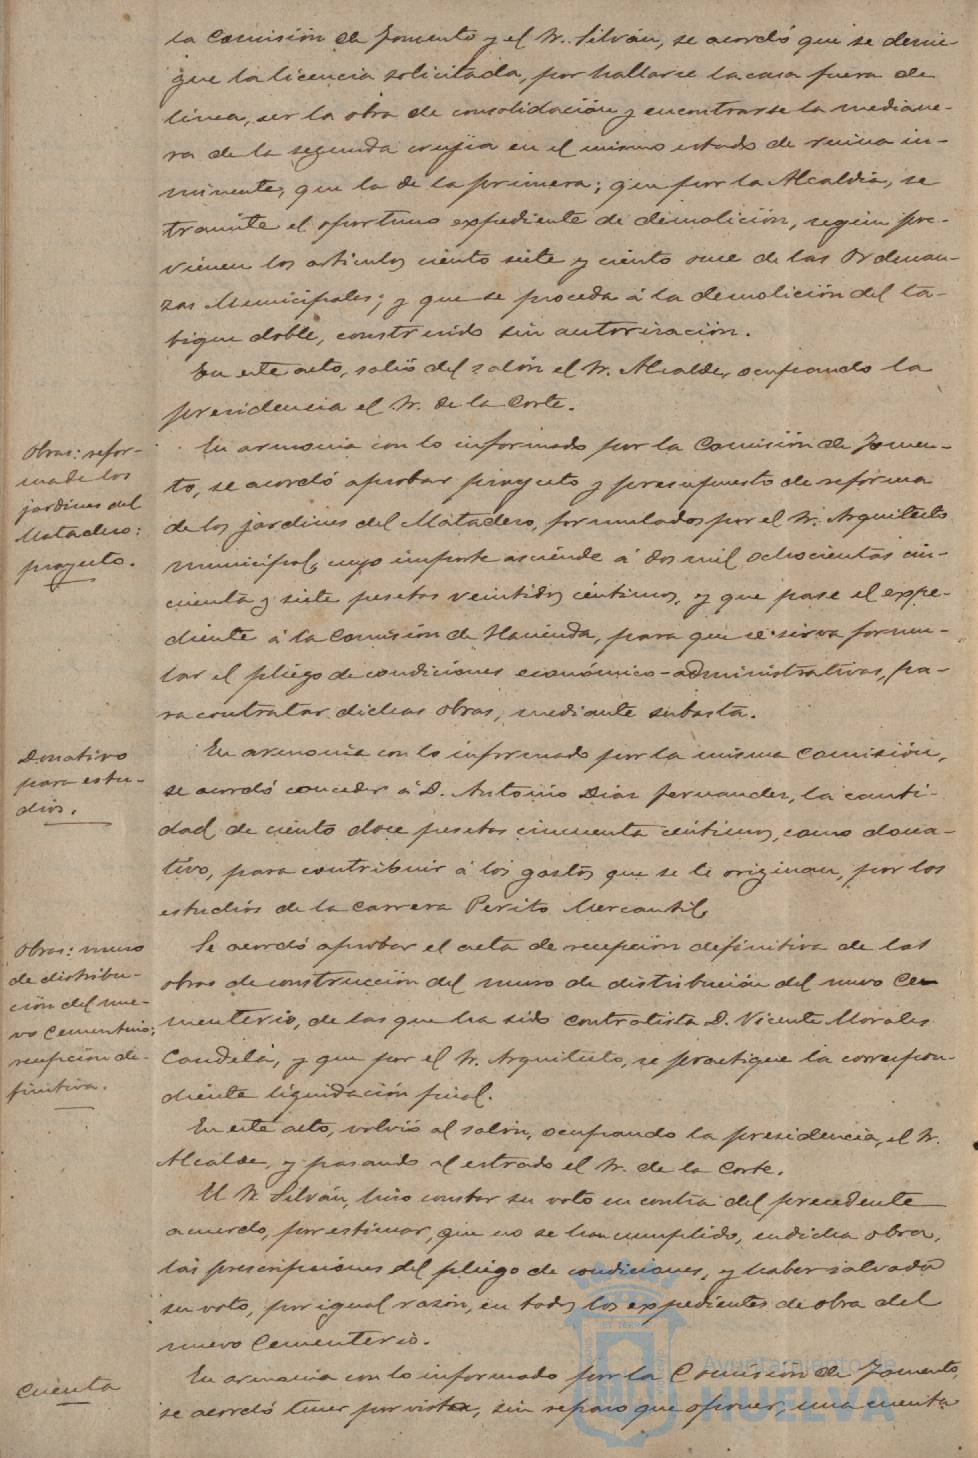 la Comisión de Fomento y el Sr. Silván, se acordó que se denie-
gue la licencia solicitada, por hallarse la casa fuera de
linea, ser la obra de consolidación y encontrarse la mediane-
ra de la segunda crujia en el mismo estado de ruina in-
minente, que la de la primera; que por la Alcaldia, se
tramite el oportuno expediente de demolición, según pre-
vienen los articulos ciento siete y ciento once de las Ordenan-
zas Municipales; y que se proceda á la demolición del ta-
bique doble, construido sin autorización.
En este acto, salió del salón el Sr. Alcalde, ocupando la
presidencia el Sr. de la Corte.
Obras: refor-
ma de los
jardines del
Matadero:
proyecto.
En armonia con lo informado por la Comisión de Fomen-
to, se acordó aprobar proyecto y presupuesto de reforma
de los jardines del Matadero, formulados por el Sr. Arquitecto
municipal, cuyo importe asciende á dos mil ochocientas cin-
cuenta y siete pesetas veintidos céntimos, y que pase el expe-
diente á la Comisión de Hacienda, para que se sirva formu-
lar el pliego de condiciones económico-administrativas, pa-
ra contratar dichas obras, mediante subasta.
Donativo
para estu-
dios.
En armonia con lo informado por la misma Comisión,
se acordó conceder á D. Antonio Diaz Fernandez, la canti-
dad de ciento doce pesetas cincuenta céntimos, como dona-
tivo, para contribuir á los gastos que se le originan, por los
estudios de la carrera Perito Mercantil.
Obras: muro
de distribu-
ción del nue-
vo Cementerio;
recepción de-
finitiva.
Se acordó aprobar el acta de recepción definitiva de las
obras de construcción del muro de distribución del nuevo Ce-
menterio, de las que ha sido contratista D. Vicente Morales
Candela, y que por el Sr. Arquitecto, se practique la correspon-
diente liquidación final.
En este acto, volvió al salón, ocupando la presidencia, el Sr.
Alcalde, y pasando al estrado el Sr. de la Corte.
El Sr. Silván, hizo constar su voto en contra del precedente
acuerdo, por estimar, que no se han cumplido, en dicha obra,
las prescripciones del pliego de condiciones, y haber salvado
su voto, por igual razón, en todos los expedientes de obra del
nuevo Cementerio.
Cuenta
En armonia con lo informado por la Comisión de Fomento,
se acordó tener por vista, sin reparo que oponer, una cuenta
Ayuntamiento de
HUELVA